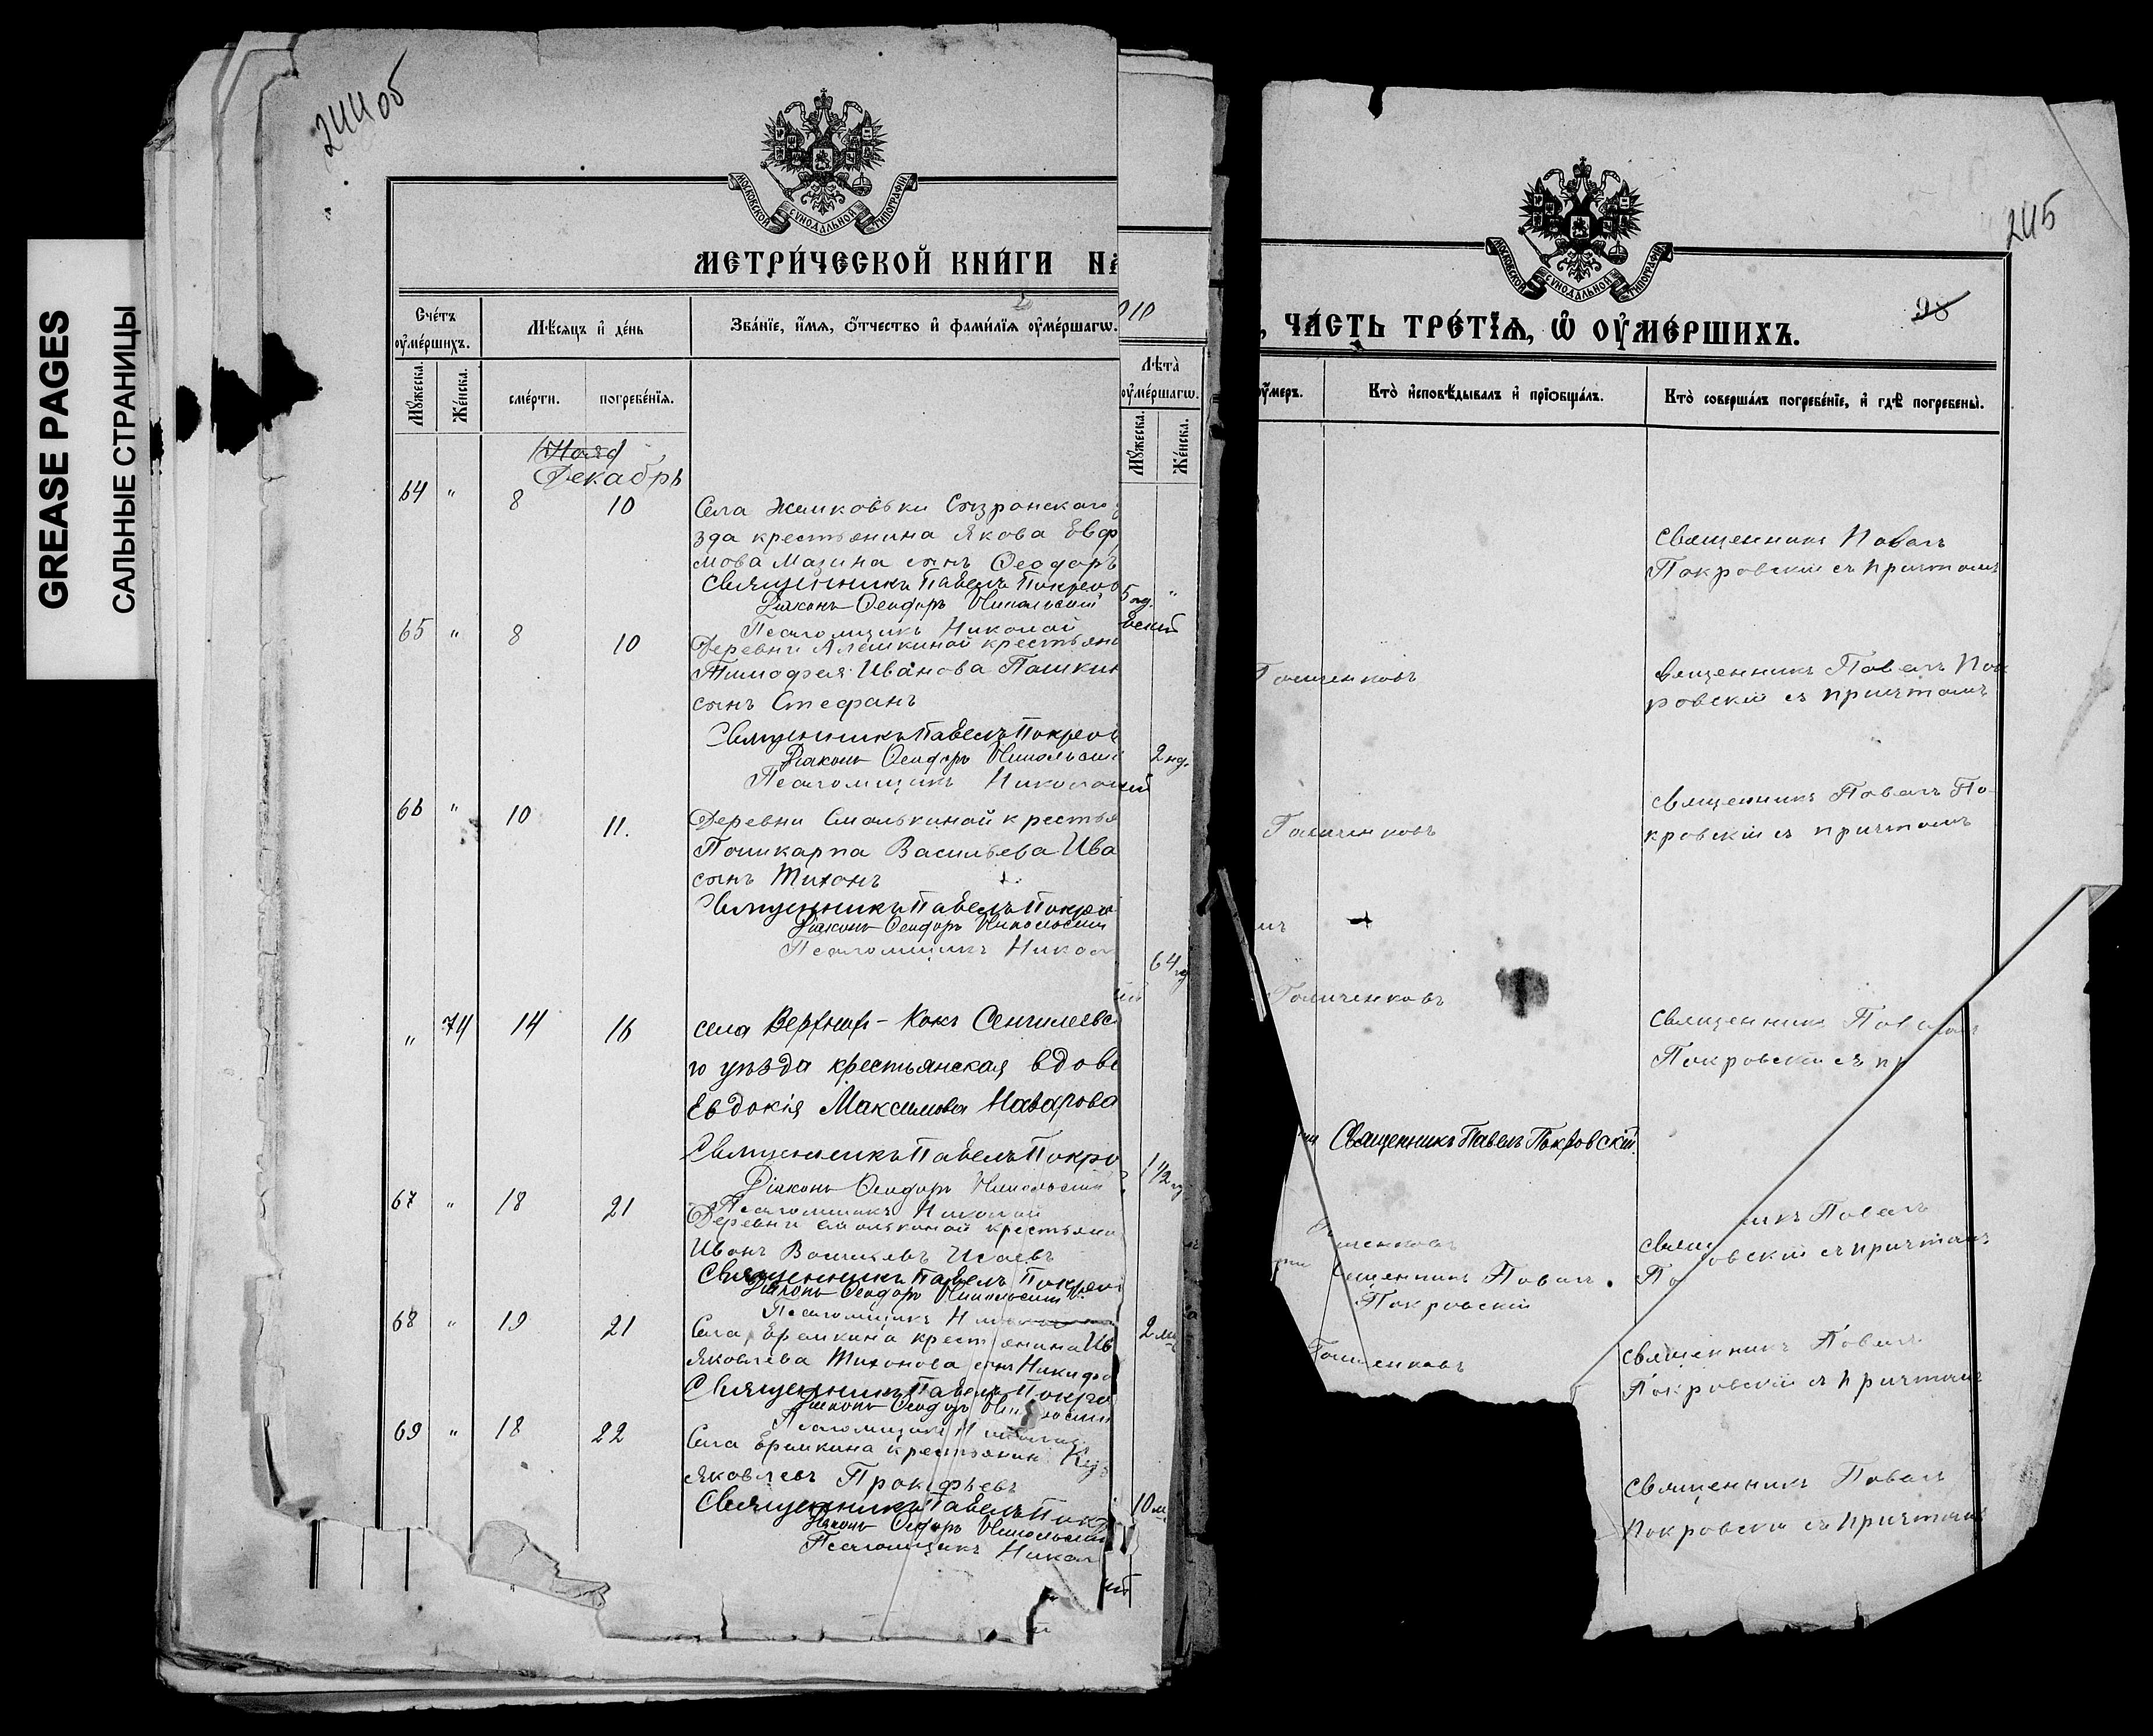 GREASE PAGES
САЛЬНЫЕ СТРАНИЦЫ
244 об
МОСКОВСКОЙ СѴНОДАЛЬНОЙ ТИПОГРАФІИ
МЕТРИ́ЧЕСКОЙ КНИ́ГИ
Сче́тъ ᲂу҆ме́ршихъ.
Мѣ́сяцъ и҆ де́нь
Зва́нїе, и҆́мя, ѻ҆́тчество и҆ фами́лїя ᲂу҆ме́ршагѡ.
Мꙋ́жеска.
Же́нска.
сме́рти.
погребе́нїя.
Декабрь
64 " 8 10
Села Жемковки Сызранскаго
зда крестьянина Якова Евф
мова Мазина сынъ Ѳеодоръ
Священникъ Павелъ Покров
Діаконъ Ѳеодоръ Никольскій
Псаломщикъ Николай
65 " 8 10
Деревни Алешкиной крестьян
Тимофея Иванова Пашкин
сынъ Стефанъ
Священникъ Павелъ Покров
Діаконъ Ѳеодоръ Никольскій
Псаломщикъ Николай
66 " 10 11.
Деревни Смолькиной крестья
Поликарпа Васильева Ива
сынъ Тихонъ
Священникъ Павелъ Покро
Діаконъ Ѳеодоръ Никольскій
Псаломщикъ Никол
" 74 14 16
села Верхней-Коки Сенгилеевс
го уѣзда крестьянская вдов
Евдокія Максимова Назарова
Священникъ Павелъ Покро
Діаконъ Ѳеодоръ Никольскій
Псаломщикъ Николай
67 " 18 21
Деревни Смолькиной крестьян
Иванъ Васильевъ Исаевъ
Священникъ Павелъ Покров
Діаконъ Ѳеодоръ Никольскій
Псаломщикъ
68 " 19 21
Села Еремкина крестьянина Ив
Яковлева Тихонова сынъ Никифо
Священникъ Павелъ Покро
Діаконъ Ѳеодоръ
Псаломщикъ
69 " 18 22
Села Еремкина крестьянин Куз
Яковлевъ Прокофьевъ
Священникъ Павелъ Пок
Діаконъ Ѳеодоръ Никольскій
Псаломщикъ Никол
10
Лѣ́та̀ ᲂу҆ме́ршагѡ.
Мꙋ́жеска.
Же́нска.
5 нд. "
2 нд.
64
1 1/2
2
10
245
98
МОСКОВСКОЙ СѴНОДАЛЬНОЙ ТИПОГРАФІИ
, ЧА́СТЬ ТРЕ́ТЇЯ, Ѽ ОУ҆МЕ́РШИХЪ.
Кто̀ и҆сповѣ́дывалъ и҆ прїѻбща́лъ.
Кто̀ соверша́лъ погребе́нїе, и҆ гдѣ̀ погребены̀.
Священникъ Павелъ
Покровскій съ причтомъ
Священникъ Павелъ Пок
ровскій съ причтомъ
Священникъ Павелъ По-
кровскій съ причтомъ
Священникъ Павелъ
Покровскій съ пр
Священникъ Павелъ Покровскій.
икъ Павелъ
Свящ
По овскій съ причтомъ
ященникъ Павелъ
Покровскій
Священникъ Павелъ
Покровскій съ причтомъ
Священникъ Павелъ
Покровскій съ причтомъ